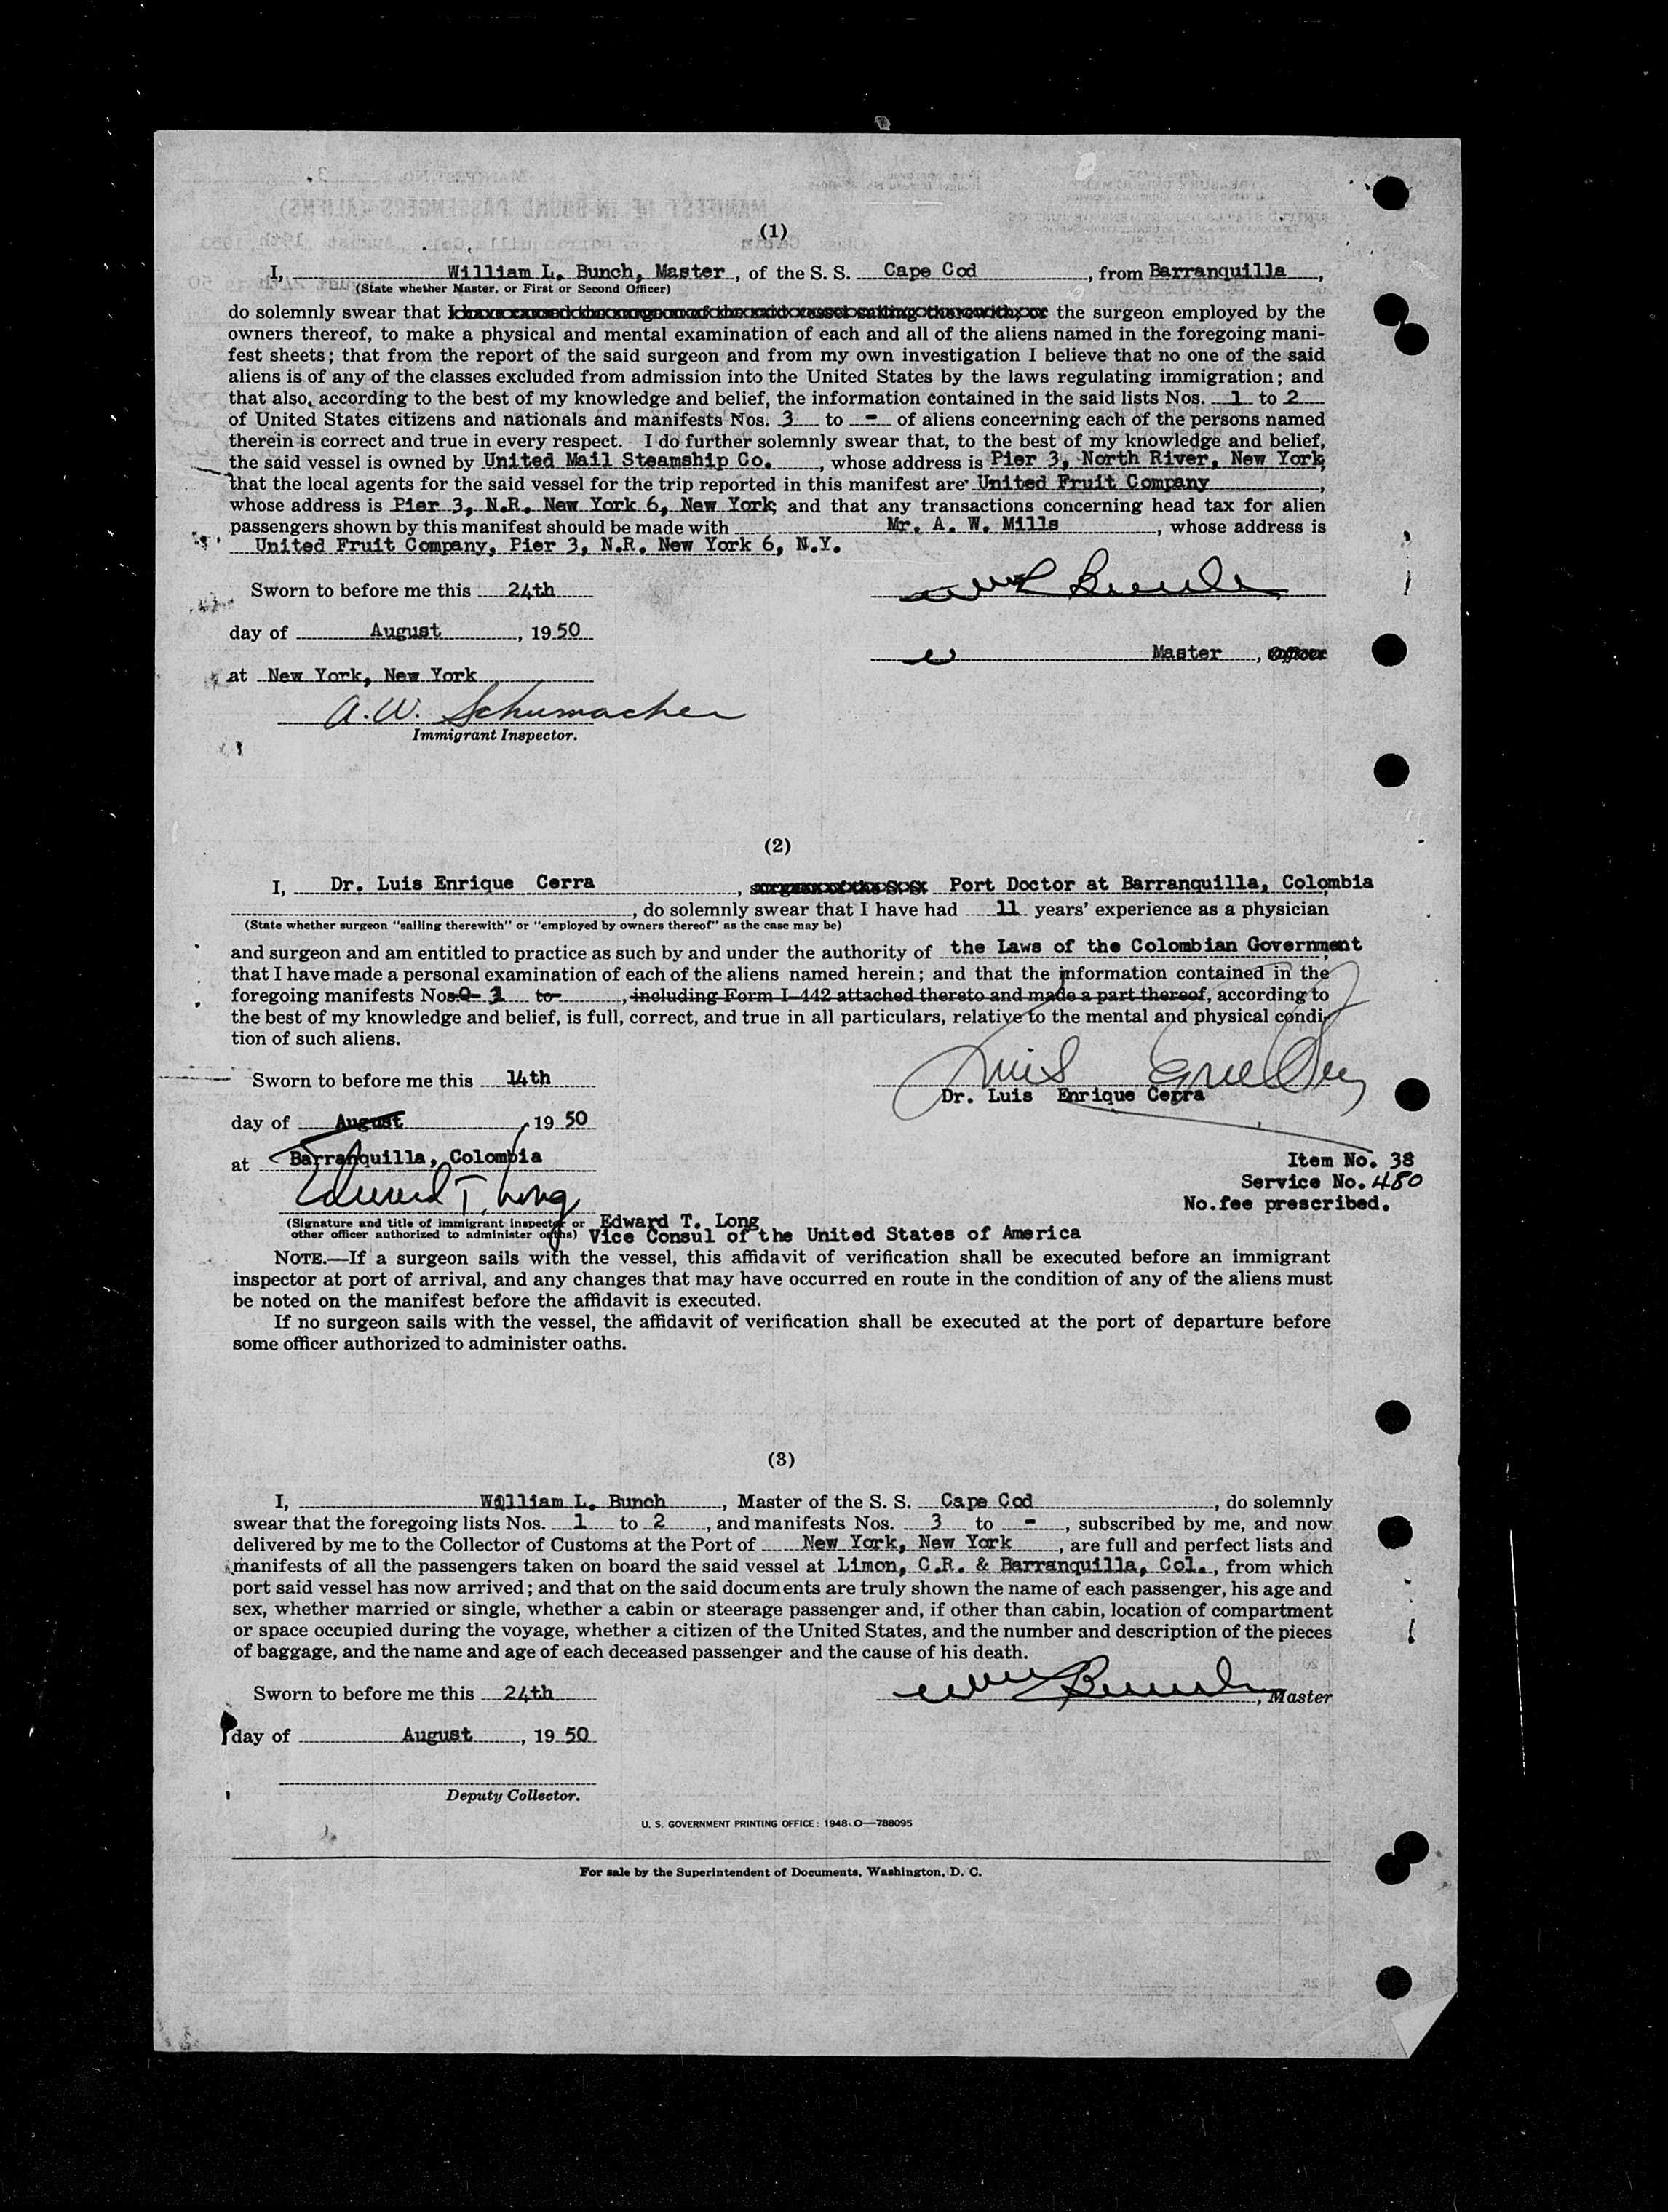 (1)
I, William L. Bunch, Master, of the S. S. Cape Cod, from Barranquilla,
(State whether Master, or First or Second Officer)
do solemnly swear that I have caused the surgeon of the said vessel sailing therewith, or the surgeon employed by the
owners thereof, to make a physical and mental examination of each and all of the aliens named in the foregoing mani-
fest sheets; that from the report of the said surgeon and from my own investigation I believe that no one of the said
aliens is of any of the classes excluded from admission into the United States by the laws regulating immigration; and
that also, according to the best of my knowledge and belief, the information contained in the said lists Nos. 1 to 2
of United States citizens and nationals and manifests Nos. 3 to - of aliens concerning each of the persons named
therein is correct and true in every respect. I do further solemnly swear that, to the best of my knowledge and belief,
the said vessel is owned by United Mail Steamship Co., whose address is Pier 3, North River, New York;
that the local agents for the said vessel for the trip reported in this manifest are United Fruit Company,
whose address is Pier 3, N.R. New York 6, New York; and that any transactions concerning head tax for alien
passengers shown by this manifest should be made with Mr. A. W. Mills, whose address is
United Fruit Company, Pier 3, N.R. New York 6, N.Y.
Sworn to before me this 24th
Wm L Bunch
day of August, 1950
Master, Officer
at New York, New York
A. W. Schumacher
Immigrant Inspector.
(2)
I, Dr. Luis Enrique Cerra, surgeon of the S. S. Port Doctor at Barranquilla, Colombia
, do solemnly swear that I have had 11 years' experience as a physician
(State whether surgeon "sailing therewith" or "employed by owners thereof" as the case may be)
and surgeon and am entitled to practice as such by and under the authority of the Laws of the Colombian Government,
that I have made a personal examination of each of the aliens named herein; and that the information contained in the
foregoing manifests Nos. 3 to , including Form I-442 attached thereto and made a part thereof, according to
the best of my knowledge and belief, is full, correct, and true in all particulars, relative to the mental and physical condi-
tion of such aliens.
Sworn to before me this 14th
Dr. Luis Enrique Cerra
day of August, 1950
at Barranquilla, Colombia
Item No. 38
Service No. 480
No.fee prescribed.
Edward T. Long
(Signature and title of immigrant inspector or
other officer authorized to administer oaths)
Edward T. Long
Vice Consul of the United States of America
NOTE.—If a surgeon sails with the vessel, this affidavit of verification shall be executed before an immigrant
inspector at port of arrival, and any changes that may have occurred en route in the condition of any of the aliens must
be noted on the manifest before the affidavit is executed.
If no surgeon sails with the vessel, the affidavit of verification shall be executed at the port of departure before
some officer authorized to administer oaths.
(3)
I, William L. Bunch, Master of the S. S. Cape Cod, do solemnly
swear that the foregoing lists Nos. 1 to 2, and manifests Nos. 3 to -, subscribed by me, and now
delivered by me to the Collector of Customs at the Port of New York, New York, are full and perfect lists and
manifests of all the passengers taken on board the said vessel at Limon, C.R. & Barranquilla, Col., from which
port said vessel has now arrived; and that on the said documents are truly shown the name of each passenger, his age and
sex, whether married or single, whether a cabin or steerage passenger and, if other than cabin, location of compartment
or space occupied during the voyage, whether a citizen of the United States, and the number and description of the pieces
of baggage, and the name and age of each deceased passenger and the cause of his death.
Sworn to before me this 24th
Wm L Bunch, Master
day of August, 1950
Deputy Collector.
U. S. GOVERNMENT PRINTING OFFICE: 1948 O—788095
For sale by the Superintendent of Documents, Washington, D. C.